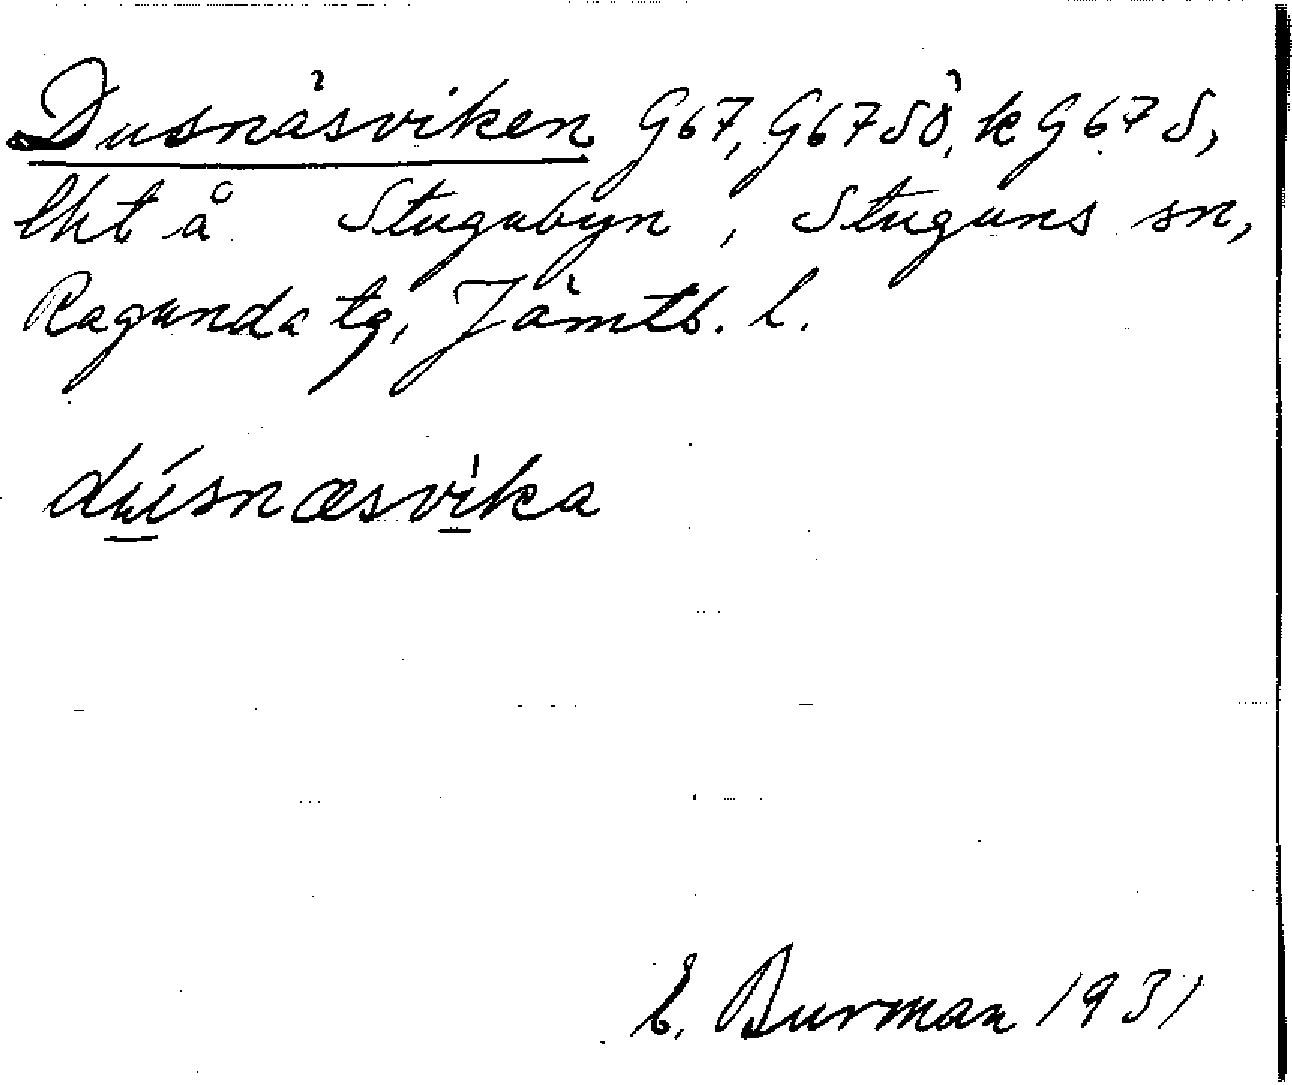 Dusnäsviken G67, G67SÖ, k G67S,
lht å Stugubyn, Stuguns sn,
Ragunda tg, Jämtl. l.
dúsnæsvika
E. Burman 1931